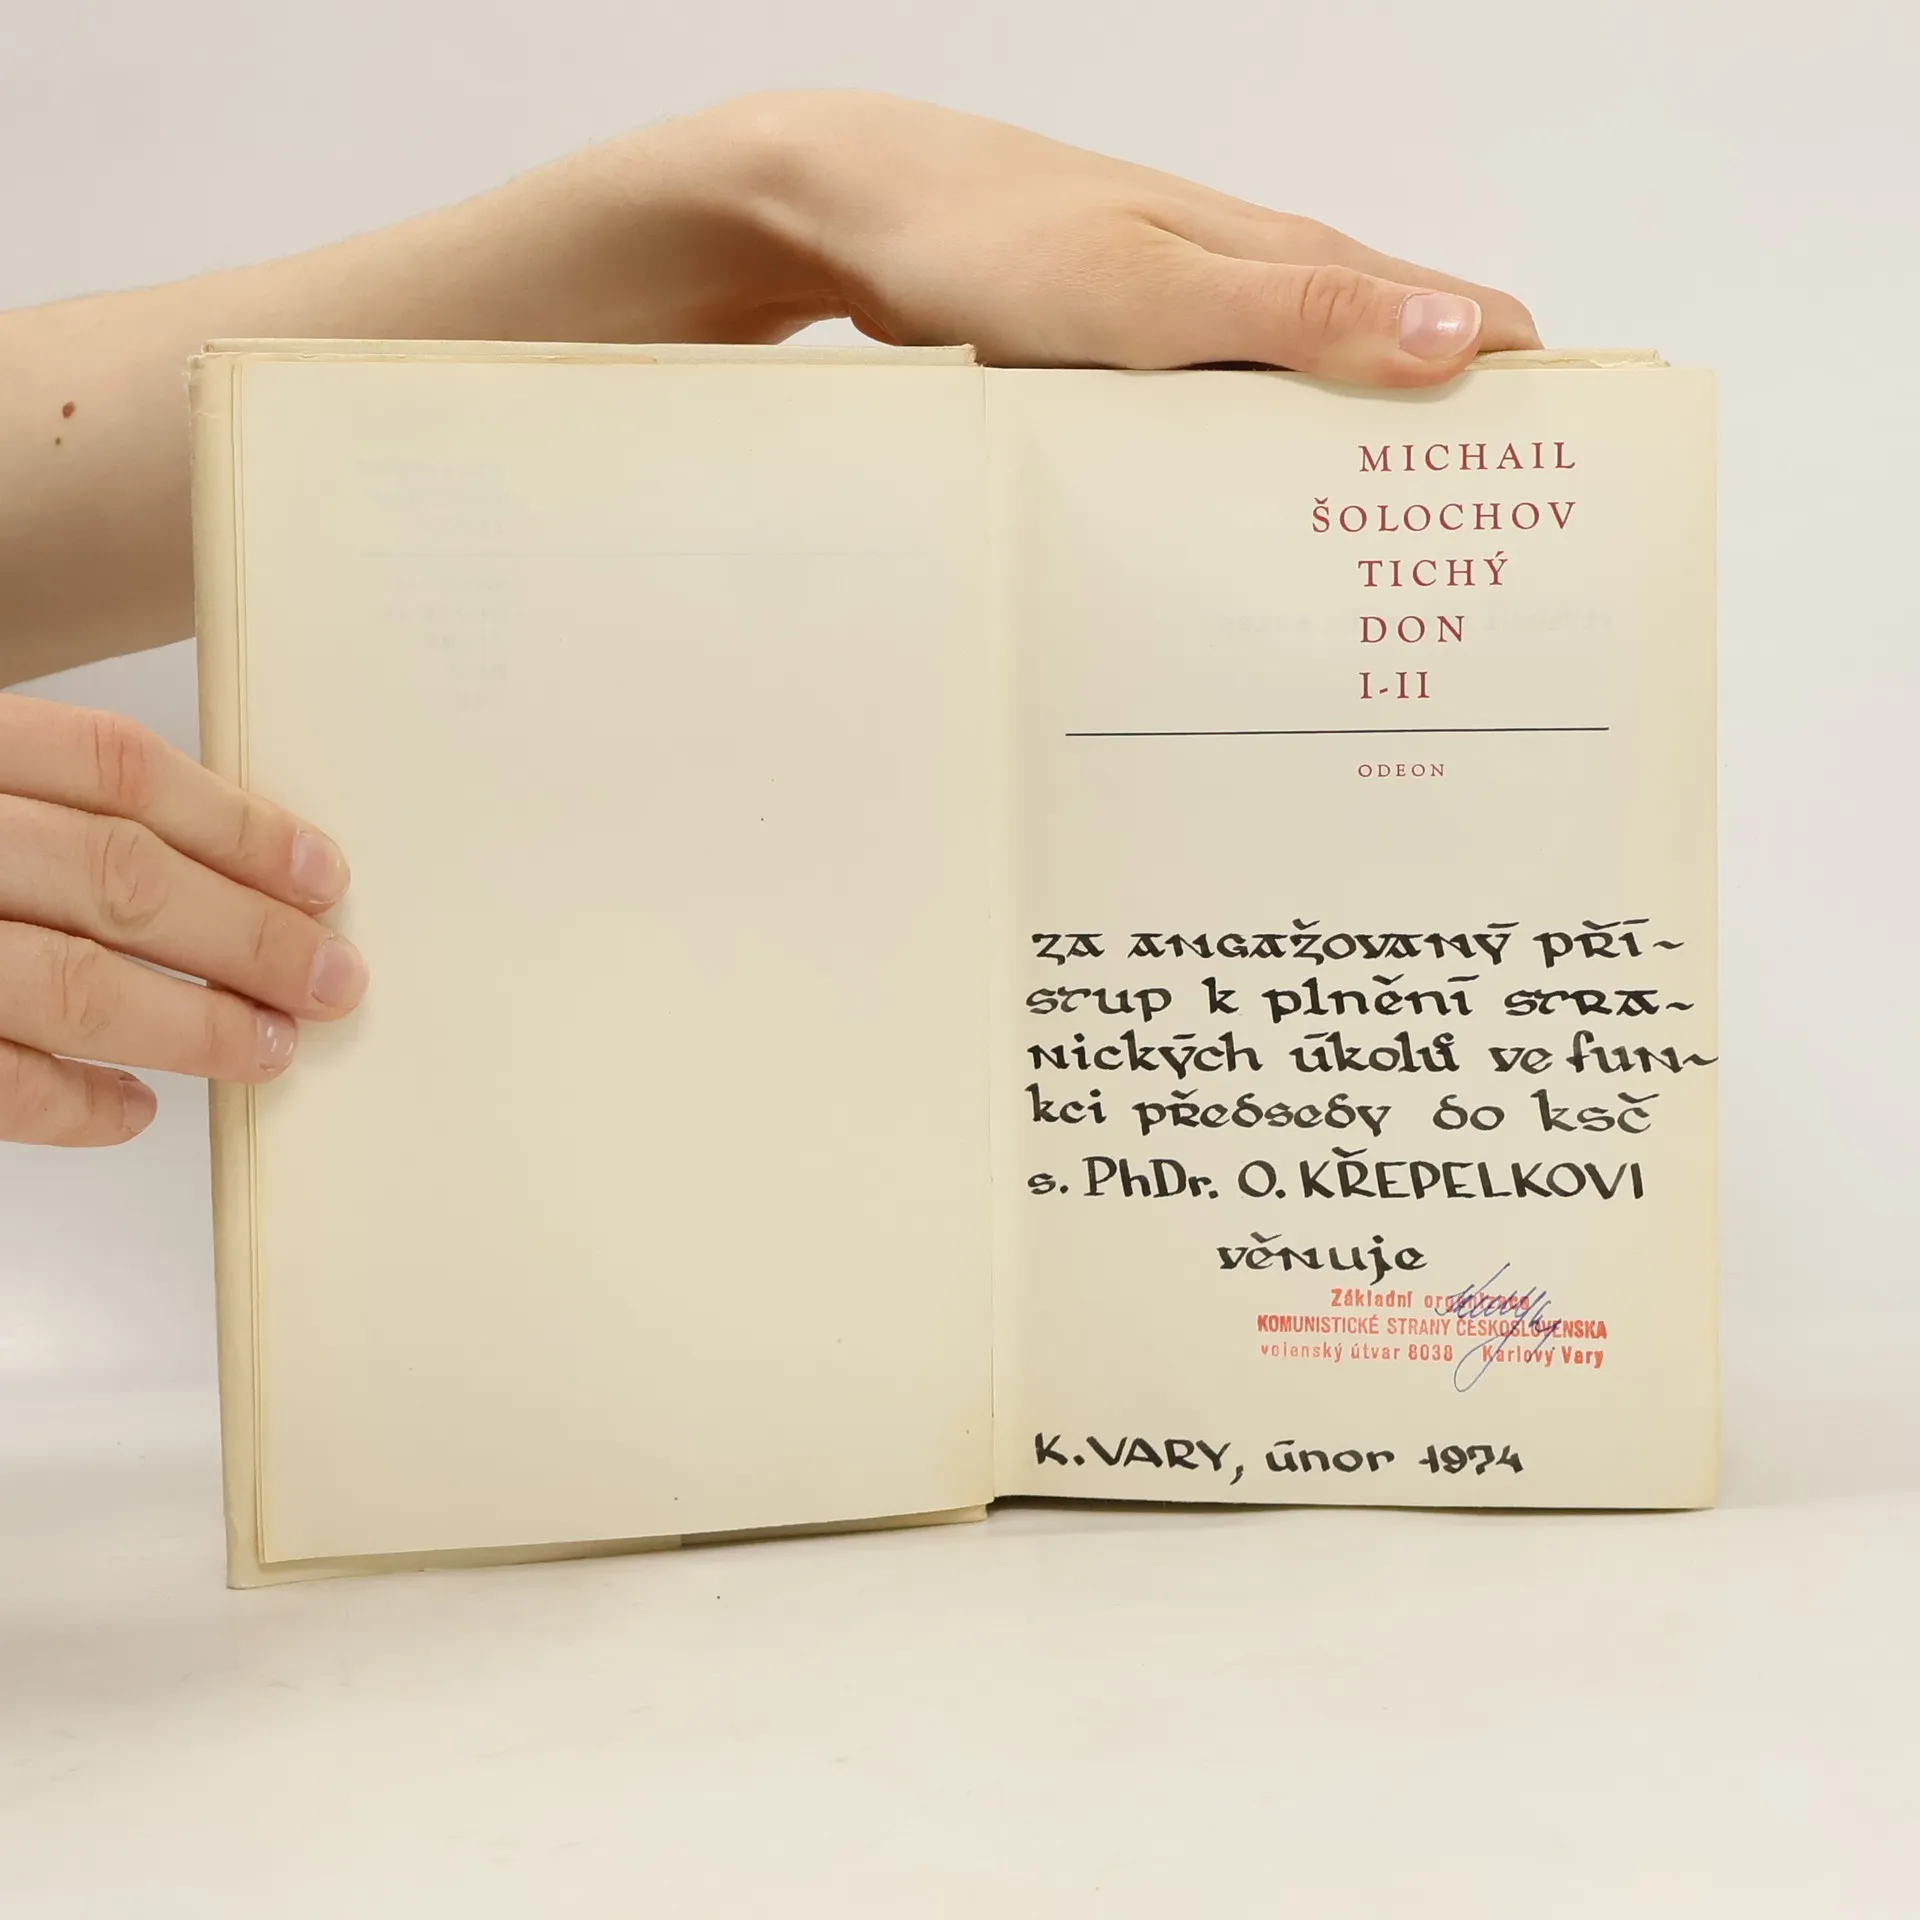 MICHAIL
ŠOLOCHOV
TICHÝ
DON
I-II
ODEON
ZA ANGAŽOVANÝ PŘÍ~
STUP K PLNĚNÍ STRA~
NICKÝCH ÚKOLŮ VE FUN~
KCI PŘEDSEDY DO KSČ
s. PhDr. O. KŘEPELKOVI
věnuje
Základní organizace
KOMUNISTICKÉ STRANY ČESKOSLOVENSKA
vojenský útvar 8038 Karlovy Vary
K. VARY, únor 1974